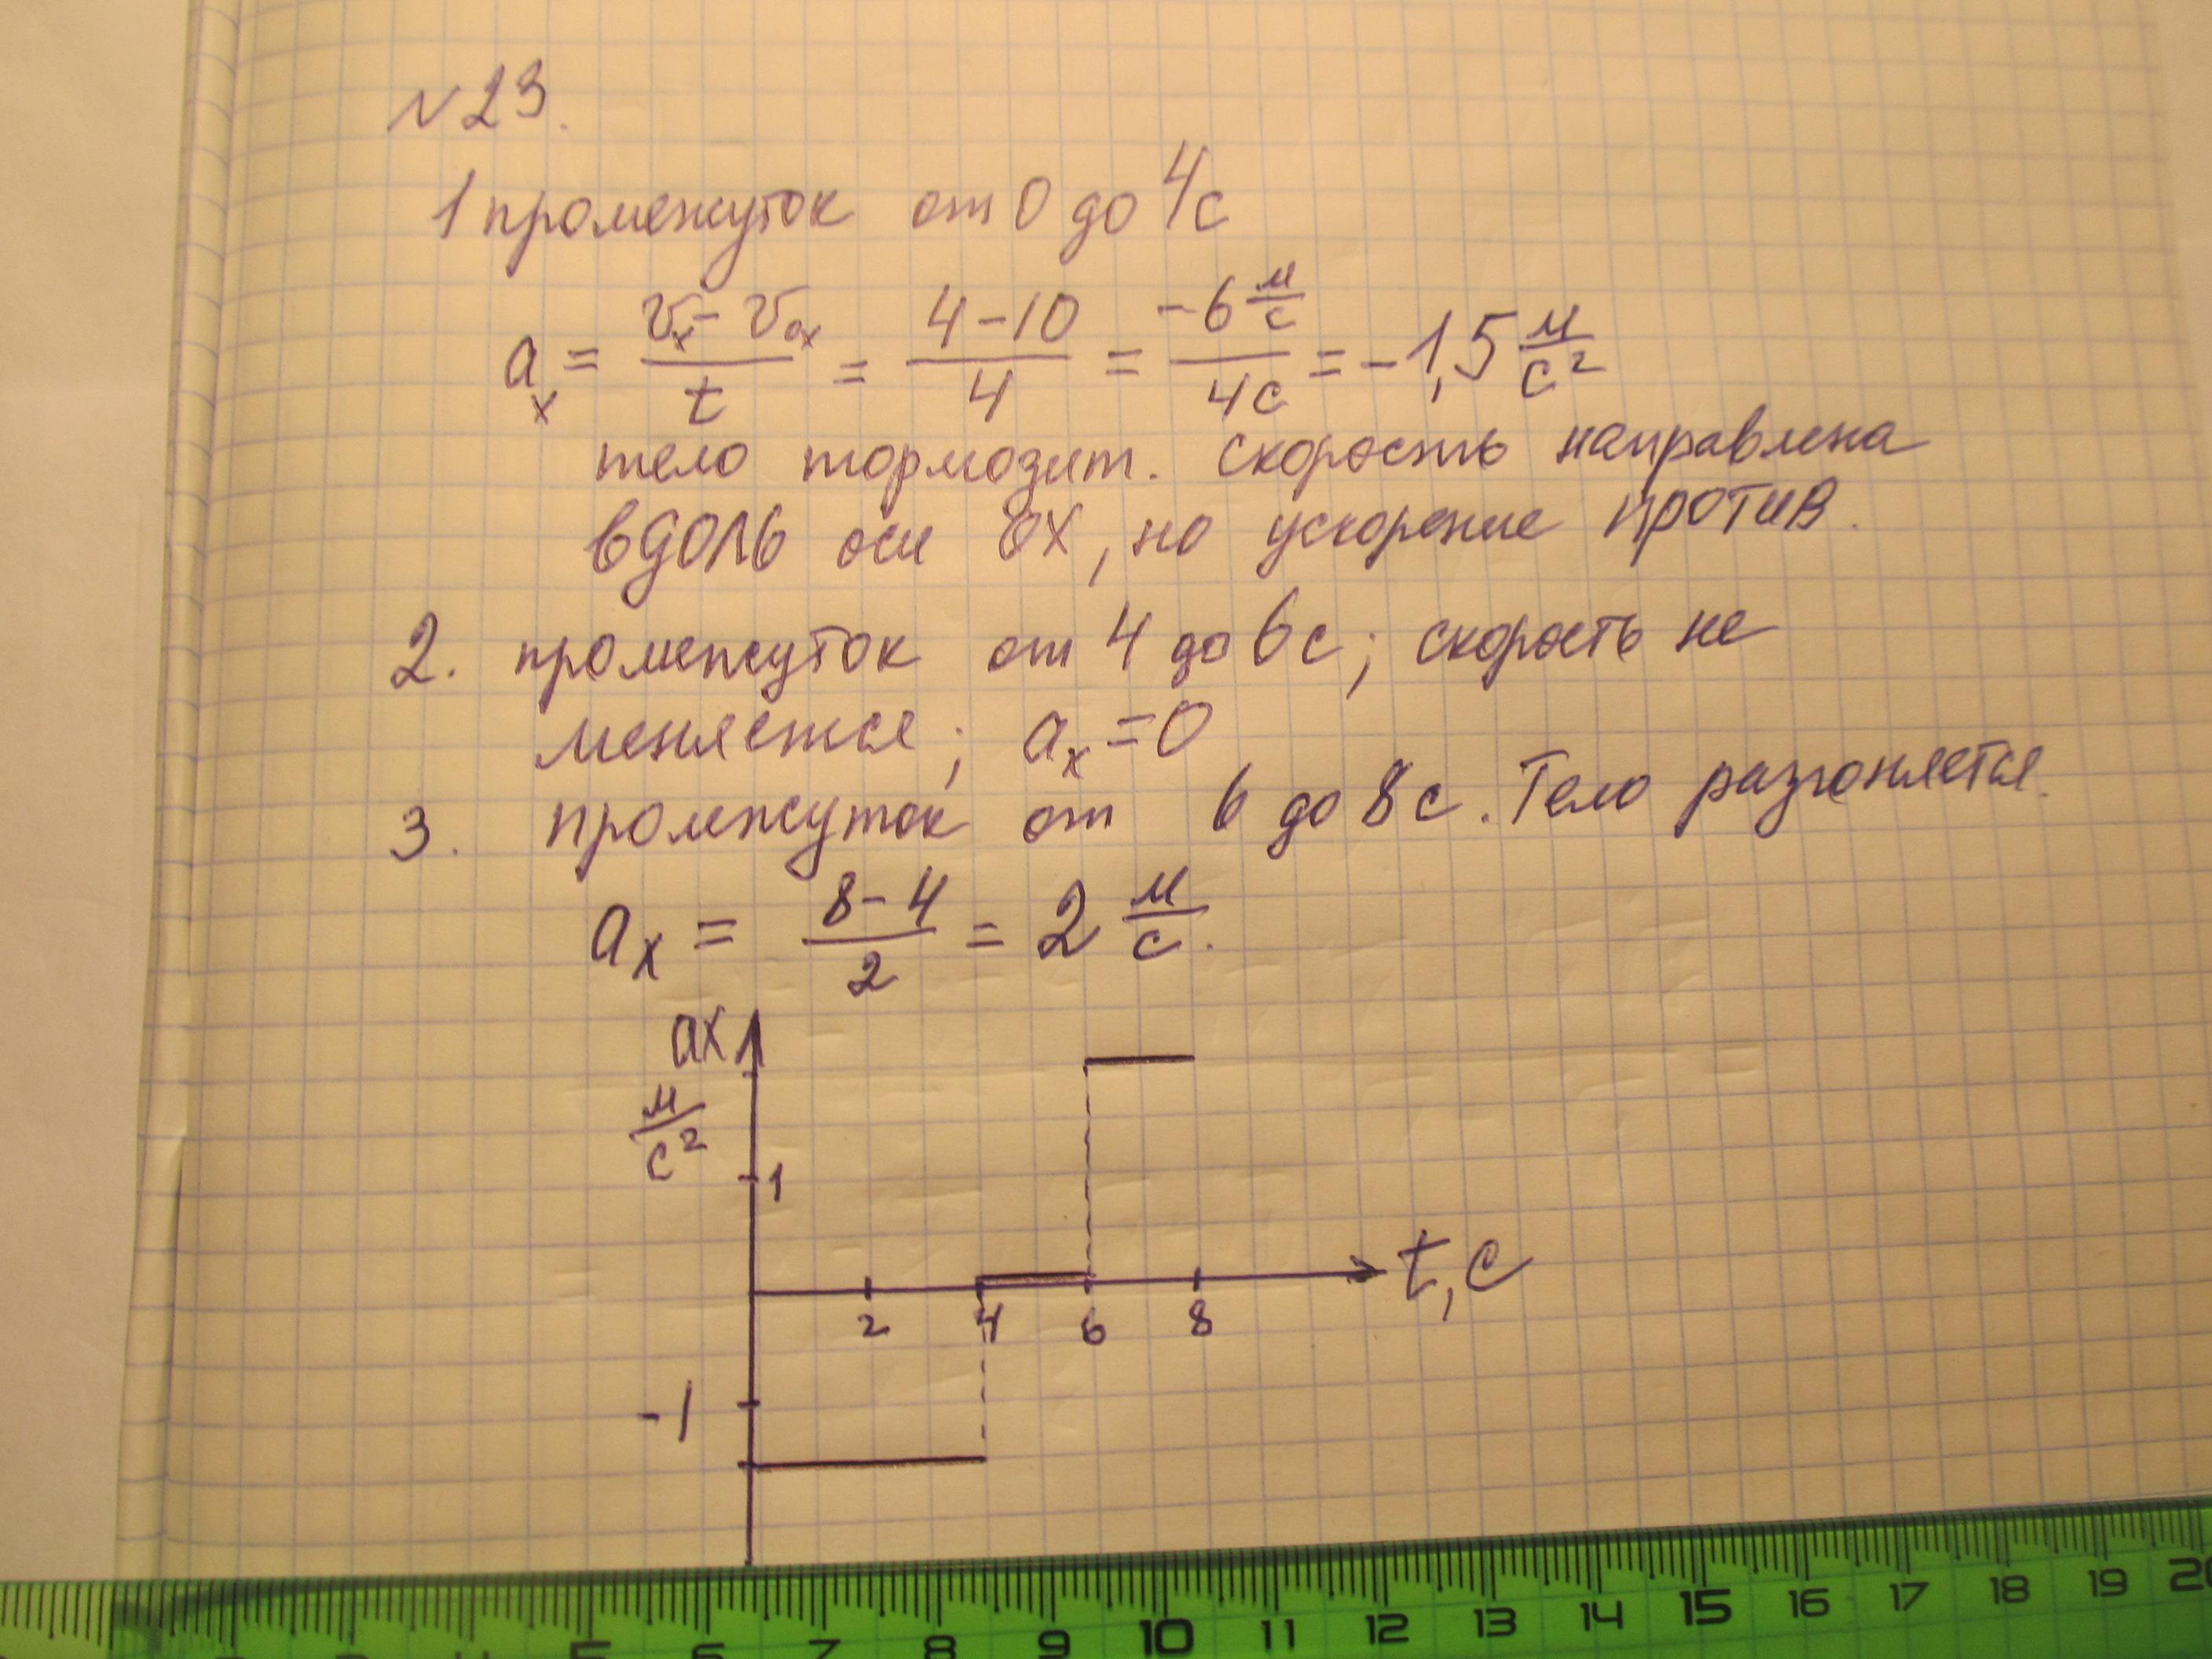 №23.
1 промежуток от 0 до 4с
aₓ = (vₓ - v₀ₓ)/t = (4-10)/4 = (-6 м/с)/(4с) = -1,5 м/с²
тело тормозит. скорость направлена
вдоль оси OX, но ускорение против.
2. промежуток от 4 до 6с; скорость не
меняется; aₓ=0
3. промежуток от 6 до 8с. Тело разгоняется.
aₓ = (8-4)/2 = 2 м/с.
ax
м/с²
1
t,с
2 4 6 8
-1
5 6 7 8 9 10 11 12 13 14 15 16 17 18 19 20